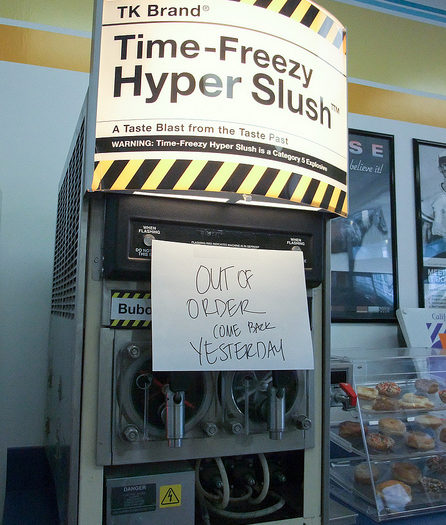 TK Brand®
Time-Freezy
Hyper Slush™
A Taste Blast from the Taste Past
WARNING: Time-Freezy Hyper Slush is a Category 5 Explosive
WHEN
FLASHING
WHEN
FLASHING
DO NOT
OUT OF
ORDER
COME BACK
YESTERDAY
Bubb
DANGER
S E
believe it!
MEET